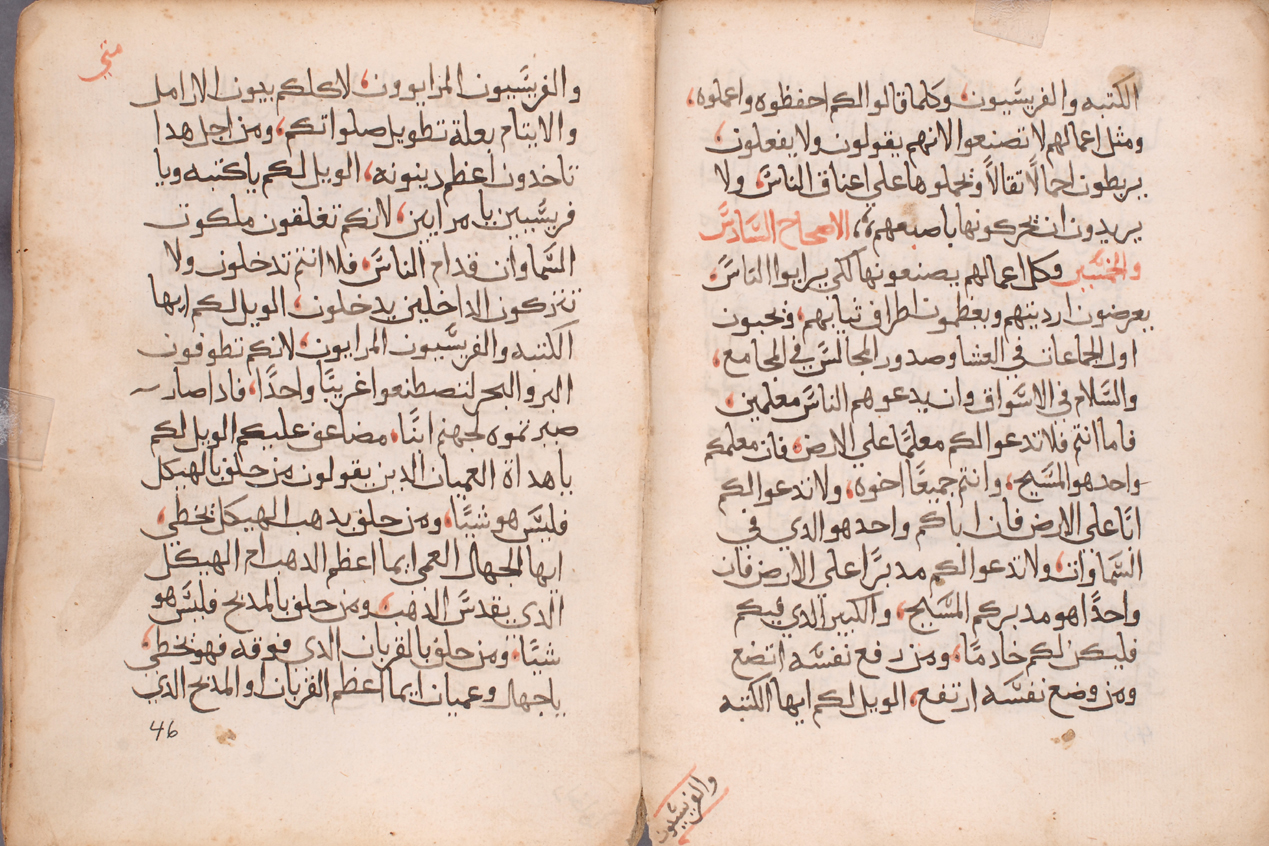 الكتبه والفريسيون، وكلما قالوا لكم احفظوه واعملوه،
ومثل اعمالهم لا تصنعوا لانهم يقولون ولا يفعلون،
يربطون احمالاً تقالاً وتحملوها علي اعناق الناس، ولا
يريدون ان تحركونها باصبعهم، الاصحاح السادس
والخمسين وكل اعمالهم يصنعونها لكي يرايوا الناس،
يعرضون ارديتهم ويعظمون اطراف ثيابهم، وتحبون
اول الجماعات في العشا وصدور المجالس في المجامع،
والسلام في الاسواق وان يدعوهم الناس معلمين،
فاما انتم فلا تدعوا لكم معلمًا علي الارض، فان معلمكم
واحد هو المسيح، وانتم جميعًا اخوه، ولا تدعوا لكم
ابًا علي الارض فان اباكم واحد هو الدي في
السماوات، ولا تدعوا لكم مدبرًا علي الارض فان
واحدًا هو مدبركم المسيح، والكبير الدي فيكم
فليكن لكم خادمًا، ومن رفع نفسه اتضع
ومن وضع نفسه ارتفع، الويل لكم ايها الكتبه
والفريسيون
متي
والفريسيون المرايوون، لاكلكم بيون الارامل
والايتام بعلة تطويل صلواتكم، ومن اجل هدا
تاخدون اعظم دينونه، الويل لكم ياكتبه ويا
فريسيين يا مرايين، لانكم تغلقون ملكوت
السماوان قدام الناس، فلا انتم تدخلون ولا
تتركون الداخلين يدخلون، الويل لكم ايها
الكتبه والفريسيون المرايون، لانكم تطوفون
البر والبحر لتصطنعوا غريبًا واحدًا، فادا صار
صيرتموه لجهنم ابنًا، مضاعف عليكم الويل لكم
ياهداة العميان الدين يقولون من حلف بالهيكل
فليس هو شيًا، ومن حلف بدهب الهيكل تخطي،
ايها الجهال العمي ايما اعظم الدهب ام الهيكل
الدي يقدس الدهب، ومن حلف بالمدبح فليس هو
شيًا، ومن حلف بالقربان الدي فوقه فهو تخطي،
ياجهال وعميان ايما اعظم القربان او المدبح الدي
46